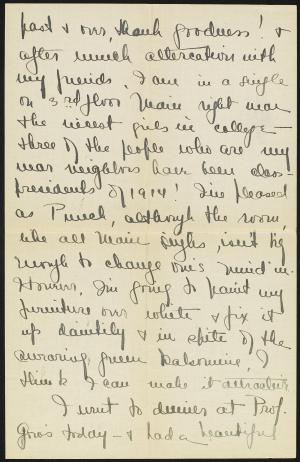 past & over, thank goodness! &
after much altercation with
my friends, I am in a single
on 3rd floor Main right near
the nicest girls in college –
three of the people who are my
near neighbors have been class
presidents of 1914! I'm pleased
as Punch, although the room,
like all Main singles, isn't big
enough to change one's mind in.
However, I'm going to paint my
furniture over white & fix it
up daintily & in spite of the
green kalsomine, I
think I can make it attractive
I went to dinner at Prof.
today – & had a beautiful